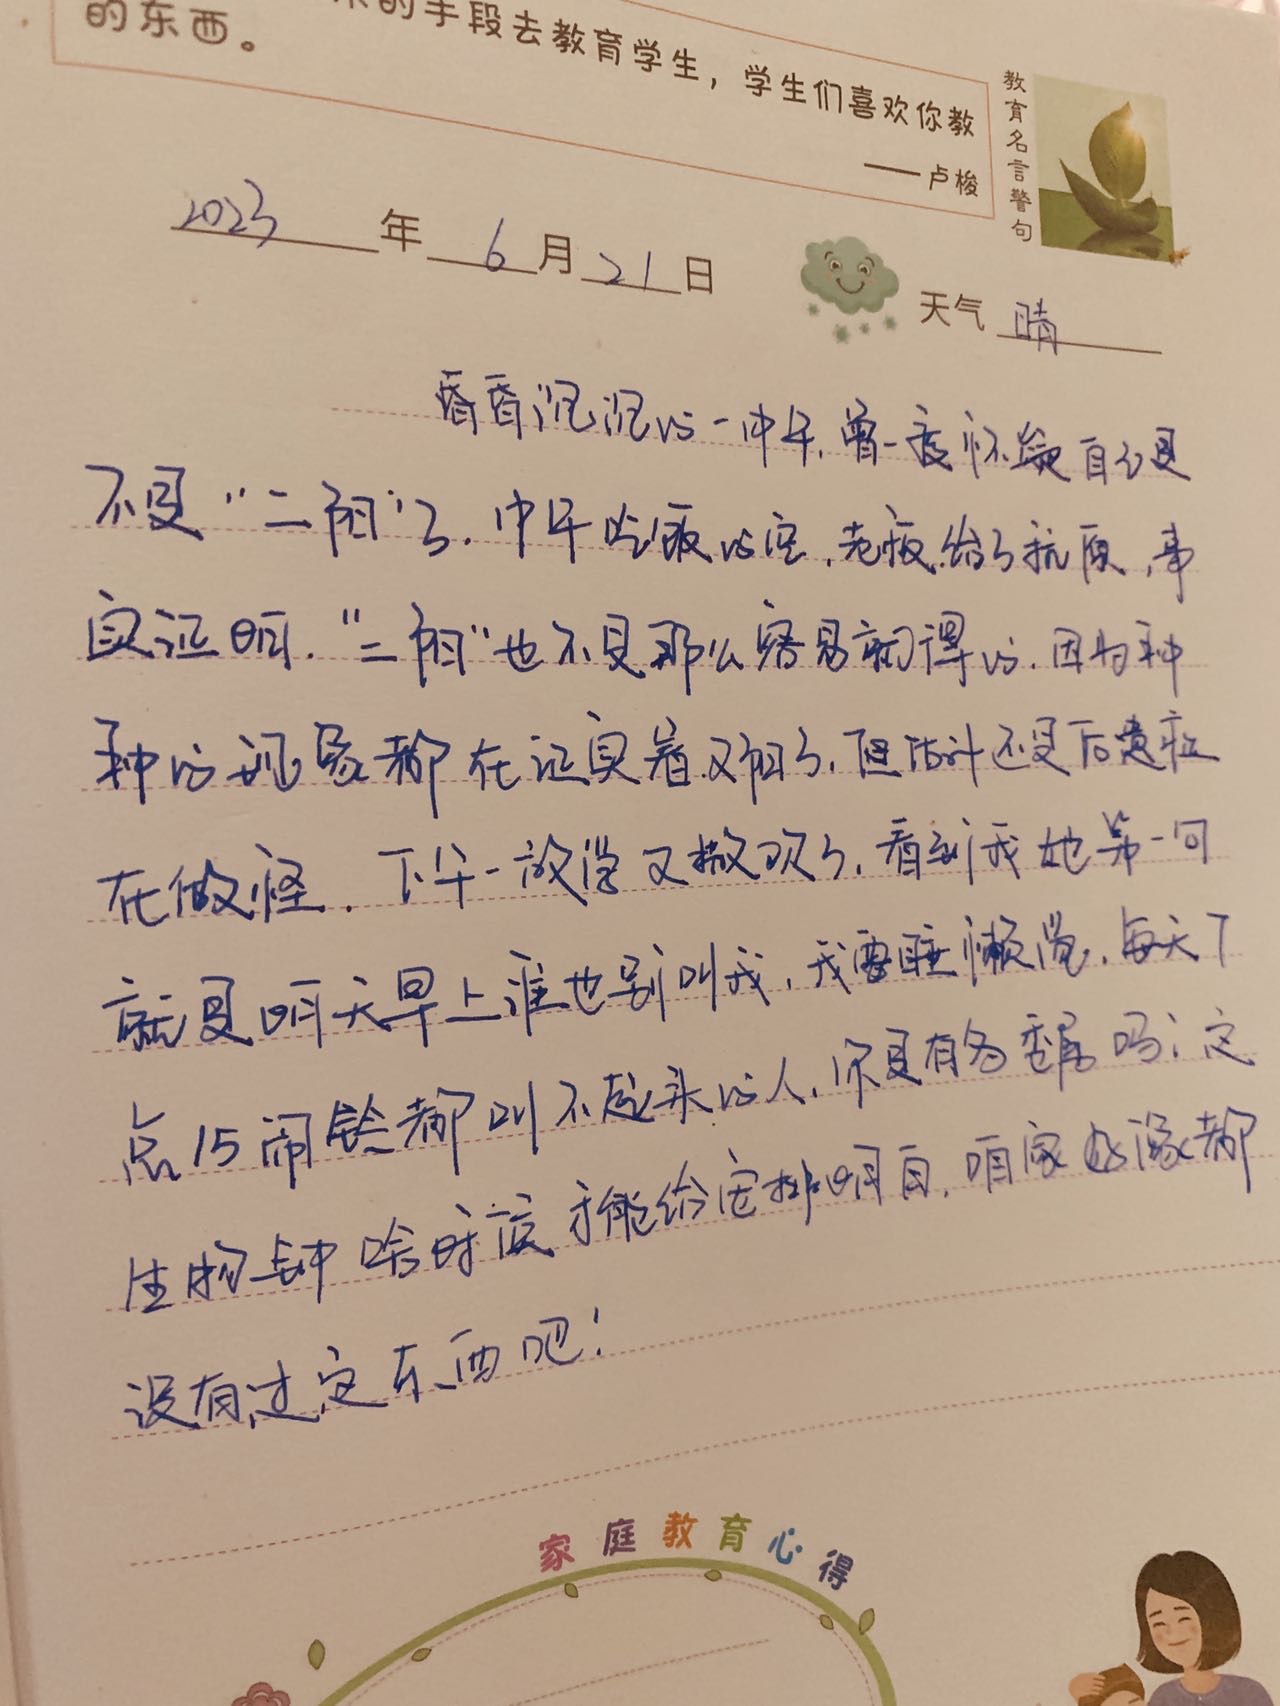 的手段去教育学生，学生们喜欢你教
的东西。
——卢梭
教育名言警句
2023年6月21日
天气 晴
昏昏沉沉的一中午，曾一度怀疑自己是
不是“二阳”了，中午吃饭的空，老板给了抗原，事
实证明，“二阳”也不是那么容易就得的，因为种
种的现象都在证实着又阳了，但估计还是后遗症
在做怪，下午一放学又撒欢了，看到我她第一句
就是明天早上谁也别叫我，我要睡懒觉，每天7
点15闹铃都叫不起来的人，你是有多香甜吗？这
生物钟啥时候才能给安排明白，咱家好像都
没有过这东西吧！
家庭教育心得